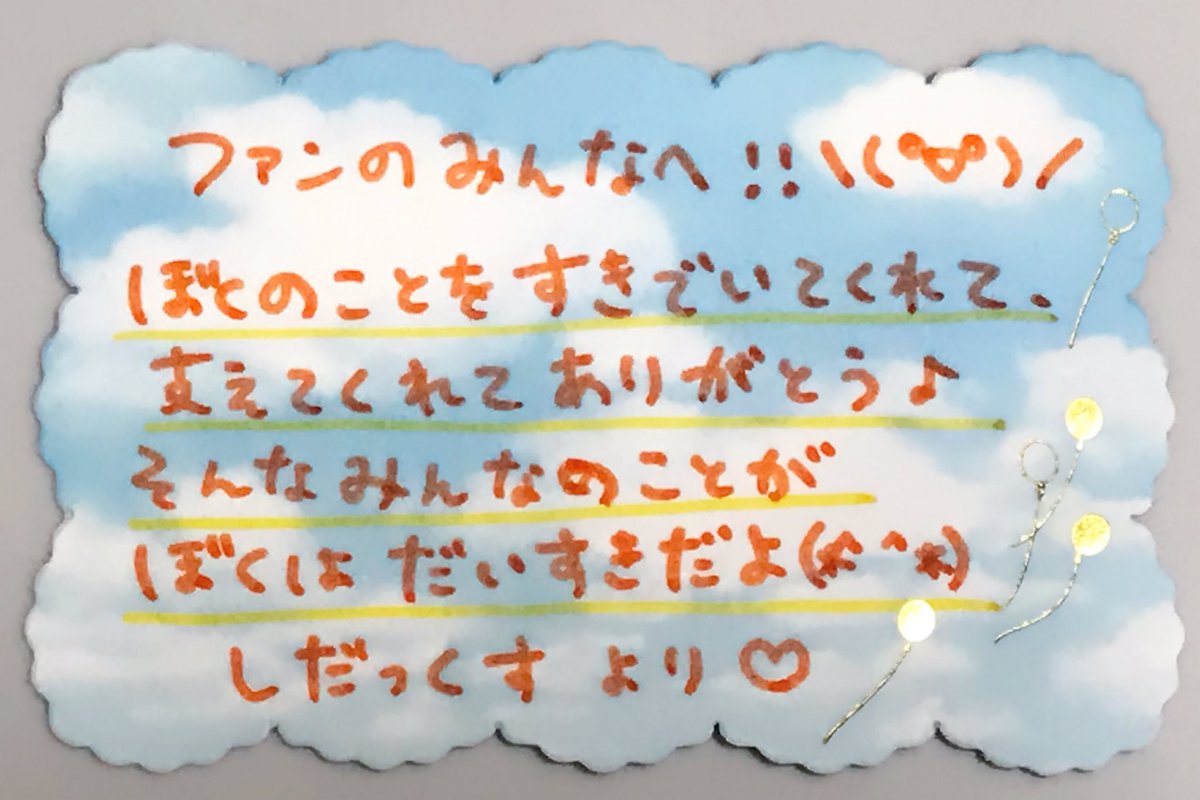 ファンのみんなへ!! \(°∀°)/
ぼくのことをすきでいてくれて、
支えてくれてありがとう♪
そんなみんなのことが
ぼくは だいすきだよ(*^^*)
しだっくす より♡